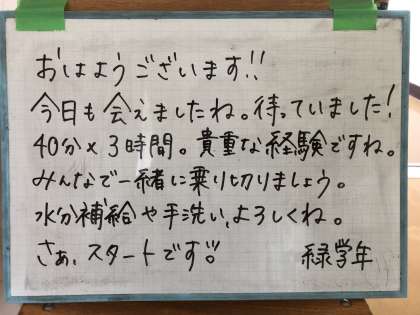 おはようございます!!
今日も会えましたね。待っていました!
40分×3時間。貴重な経験ですね。
みんなで一緒に乗り切りましょう。
水分補給や手洗い、よろしくね。
さぁ、スタートです!!
緑学年